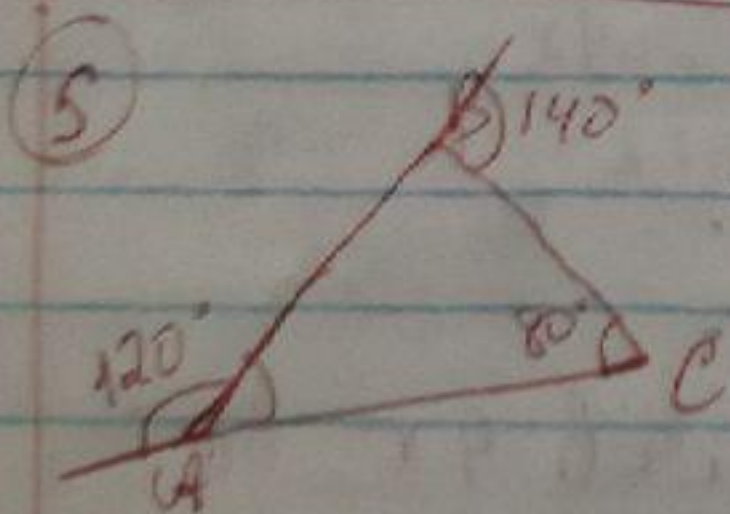 5
B 140°
120°
80° C
A